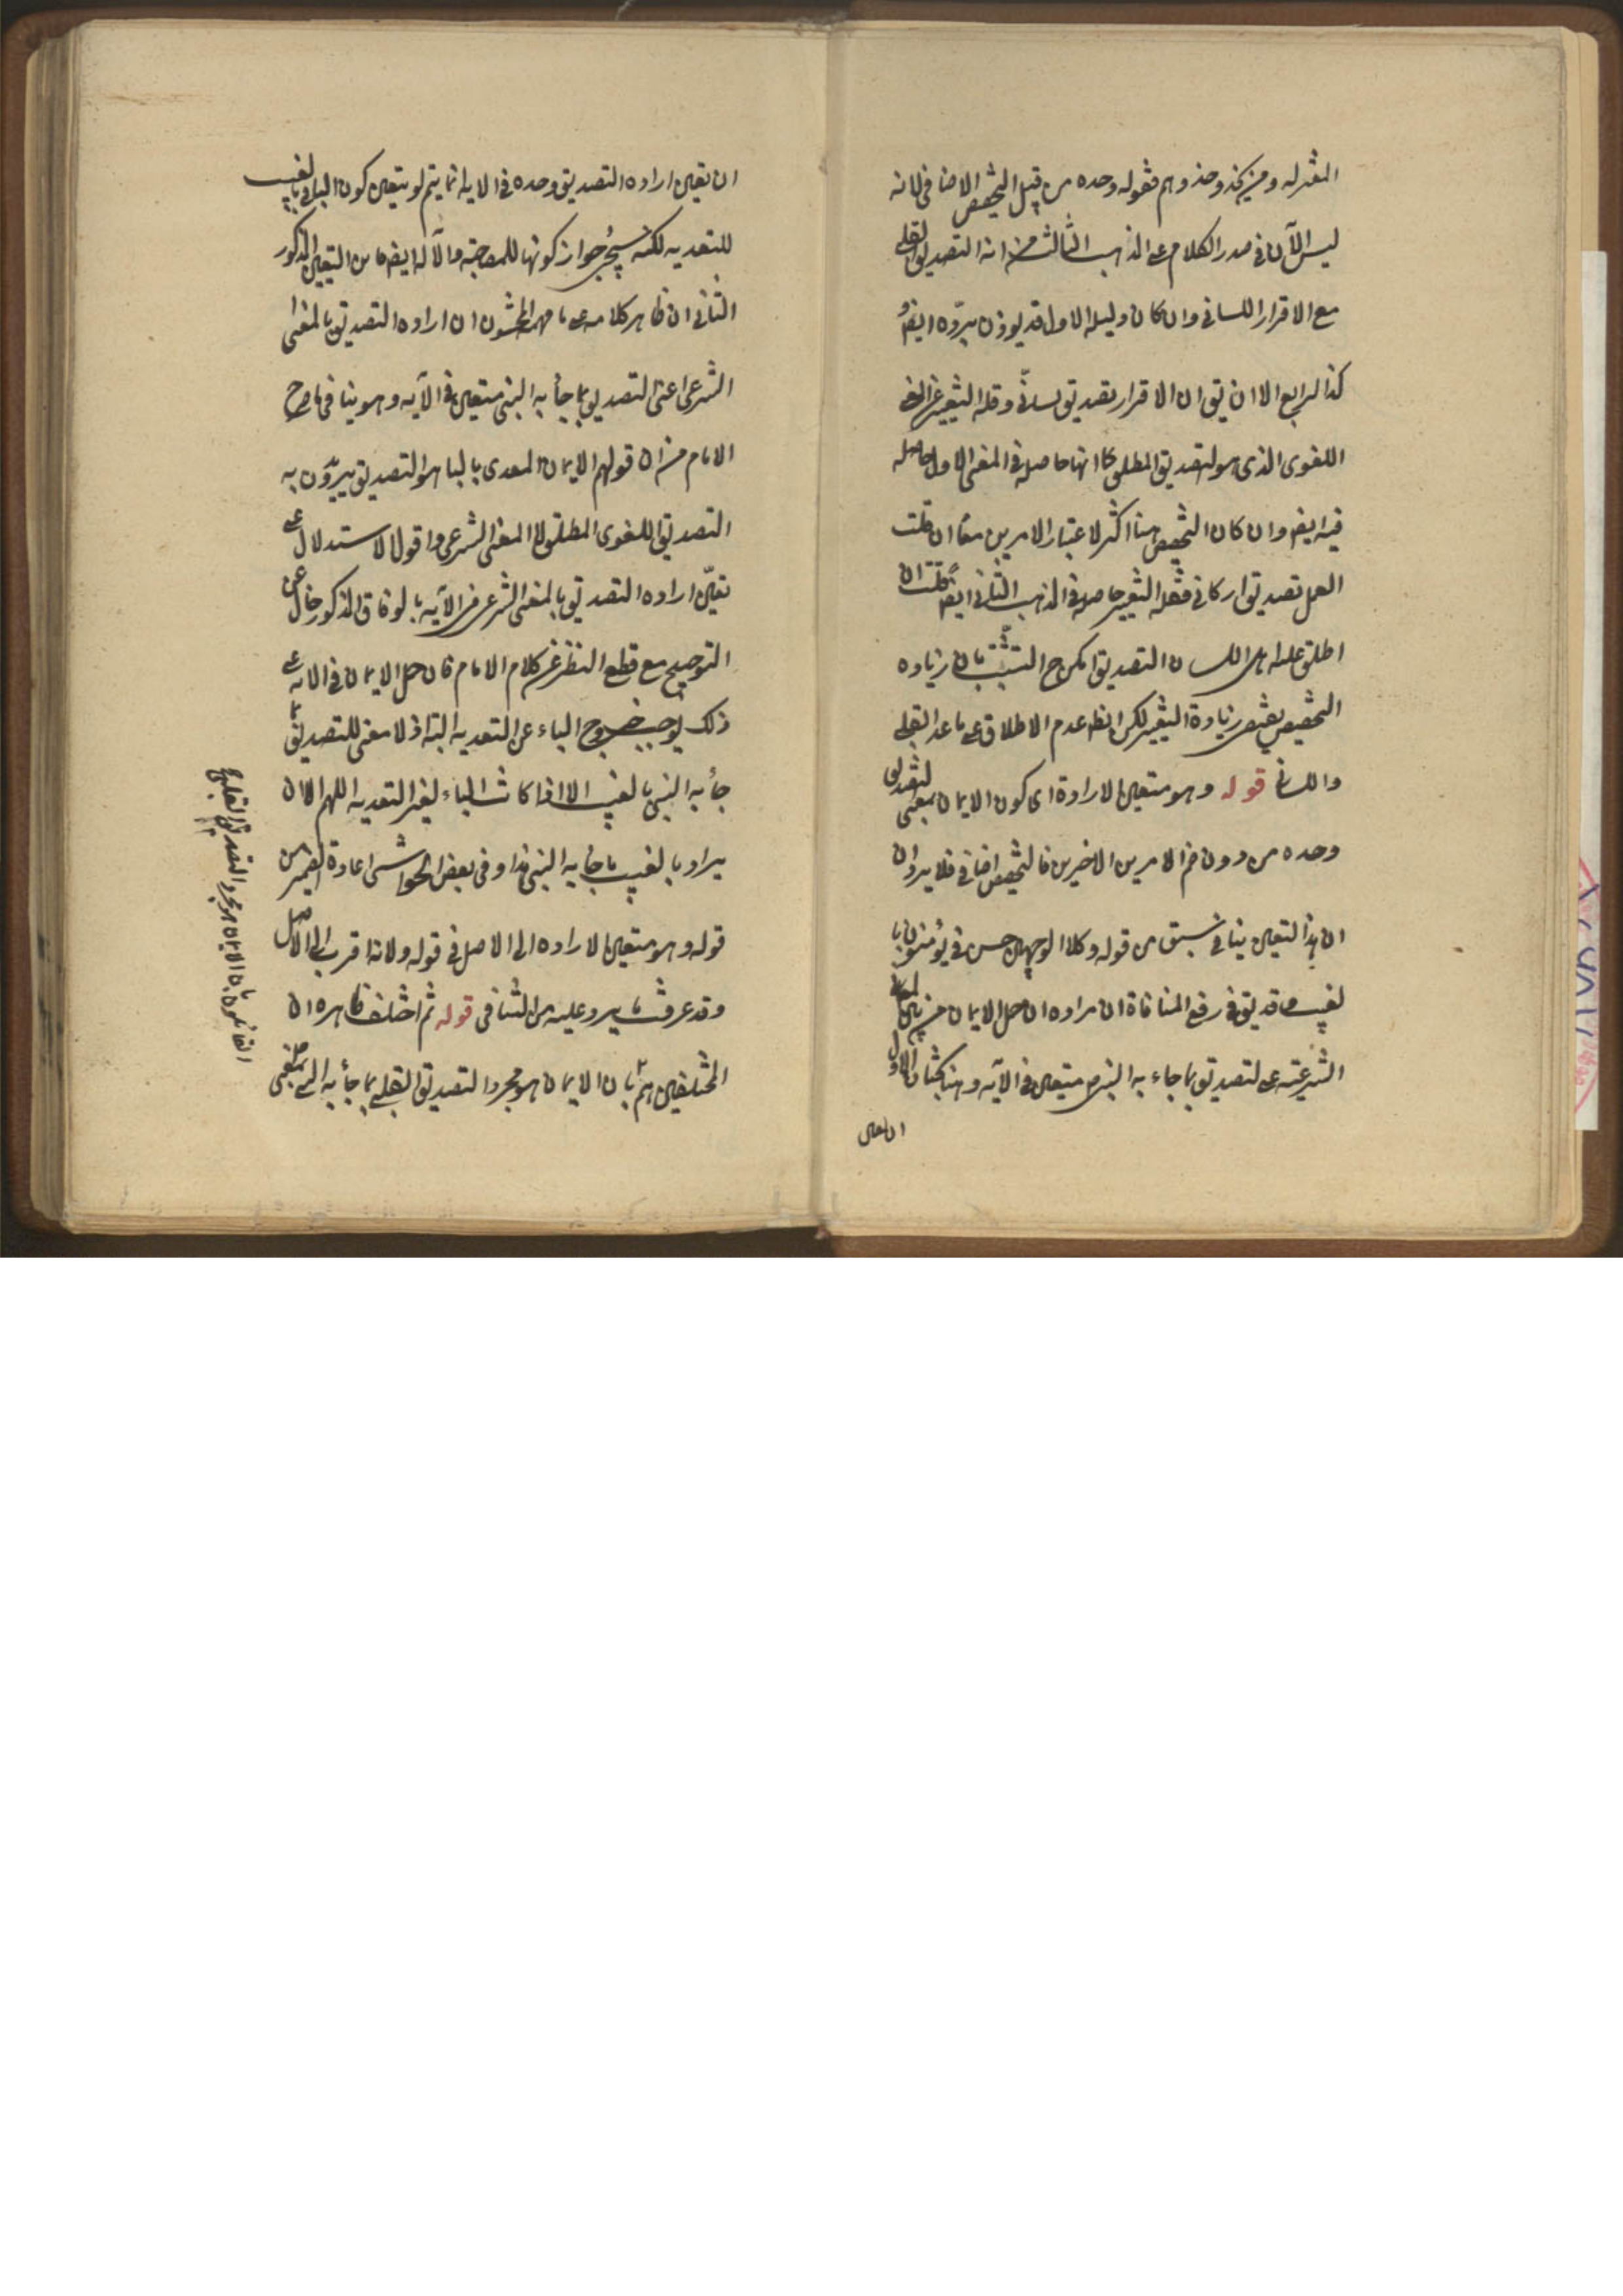 المعتزلة ومن يحذو حذوهم فقوله وحده من قبيل التخصيص الاضافى لانه
ليس الآن فى صدر الكلام على المذهب الثالث من انه التصديق القلبى
مع الاقرار اللسانى وان كان دليله الاول قد يوذن بردّه ايضا و
كذا الرابع الا ان يق ان الاقرار تصديق لسانى وقلة التغيير عن المعنى
اللغوى الذى هو التصديق المطلق كما انها حاصلة فى المعنى الاول حاصلة
فيه ايضا وان كان التخصيص هنا اكثر لاعتبار الامرين معا ان قلت
العمل تصديق اركانى فقلة التغيير حاصلة فى المذهب الثانى ايضا قلت ان
اطلق عليه اهل اللسان التصديق امكن ح التشبث بان زيادة
التخصيص يقتضى زيادة التغيير لكن الظ عدم الاطلاق على ما عدا القلبى
واللسانى قوله وهو متعين الارادة اى كون الايمان بمعنى التصديق
وحده من دون ضم الامرين الاخيرين فالتخصيص اضافى فلا يرد ان
ان هذا التعين ينافى ما سبق من قوله وكلا الوجهين حسن فى يؤمنون با
لغيب وقد يق فى رفع المنافاة ان مراده ان حمل الايمان من بين المعانى
الشرعية على التصديق بما جاء به النبى متعين فى الآية وهنا بحثان الاول
ان تعين
ان تعين ارادة التصديق وحده فى الاية انما يتم لو تعين كون الباء فى بالغيب
للتعدية لكنه سيجوز جواز كونها للمصاحبة والآلة ايضا فاين التعين المذكور
الثانى ان ظاهر كلامه على ما فهمه المحشون ان ارادة التصديق بالمعنى
الشرعى اعنى التصديق بما جأ به النبى متعين فى الآية وهو ينافى ما صرح
الامام من ان قولهم الايمان المعدى بالباء هو التصديق يريدون به
التصديق اللغوى المطلق لا المعنى الشرعى واقول الاستدلال على
تعيّن ارادة التصديق بالمعنى الشرعى من الآية بالوفاق المذكور خال عن
التوجيه مع قطع النظر عن كلام الامام فان حمل الايمان فى الاية على
ذلك يوجب خروج الباء عن التعدية البتة اذ لا معنى للتصديق بما
جأ به النبى بالغيب الا اذا كانت الباء لغير التعدية اللهم الا ان
يراد بالغيب ما جأ به النبى هذا وفى بعض الحواشى اعادة الضمير من
قوله وهو متعين الارادة الى الاصل فى قوله ولانه اقرب الى الاصل
وقد عرفت ما يرد عليه من التنافى قوله ثم اختلف ظاهره ان
المختلفين هم بان الايمان هو مجرد التصديق القلبى بما جأ به النبى بمعنى
القائلون بان الايمان هو مجرد التصديق القلبى